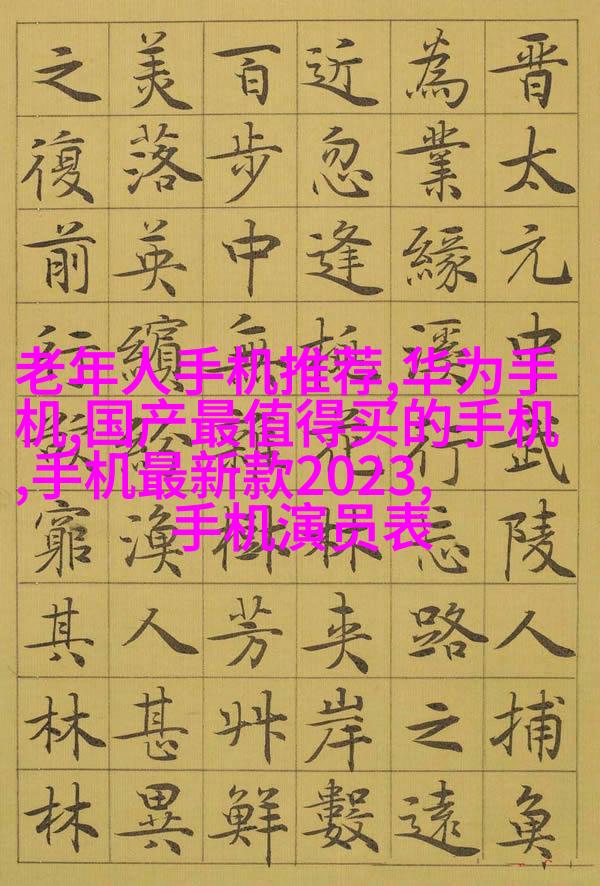 晋太元中武陵人捕魚
為業緣溪行忘路之遠
近忽逢桃花林夾岸數
百步中無雜樹芳艸鮮
美落英繽紛漁人甚異
之復前行欲窮其林林
老年人手机推荐,华为手
机,国产最值得买的手机
,手机最新款2023,
手机演员表